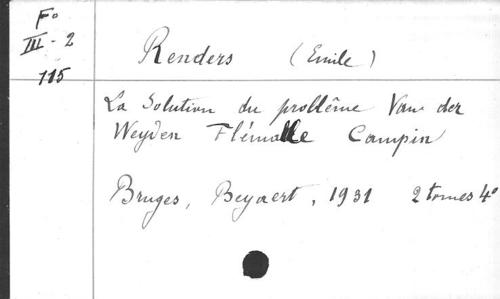 F°
III - 2
115
Renders (Emile)
La Solution du problême Van der
Weyden Flémalle Campin
Bruges, Beyaert, 1931 2 tomes 4°